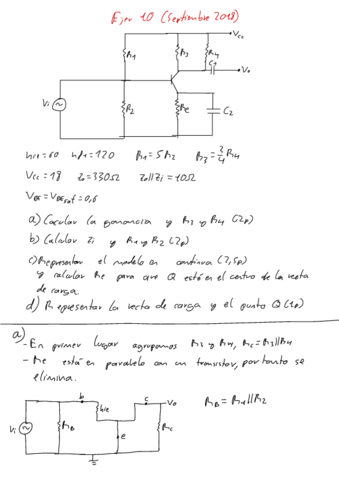 Ejer 10 (Septiembre 2018)
Vcc
R1
R3
R4
C1
Vo
Vi
R2
Re
C2
hie=60 hfe=120 R1=5R2 R3=3/4 R4
Vcc=18 Zo=330Ω Zo||Zi=10Ω
VBE=VBEsat=0,6
a) Calcular la ganancia y R3 y R4 (2p)
b) Calcular Zi y R1 y R2 (2p)
c) Representar el modelo en continua (2,5p)
y calcular Re para que Q esté en el centro de la recta
de carga.
d) Representar la recta de carga y el punto Q (1p)
a)
-En primer lugar agrupamos R3 y R4, Rc=R3||R4
-Re está en paralelo con un transistor, por tanto se
elimina.
b
hie
c
Vo
RB=R1||R2
Vi
RB
e
Rc